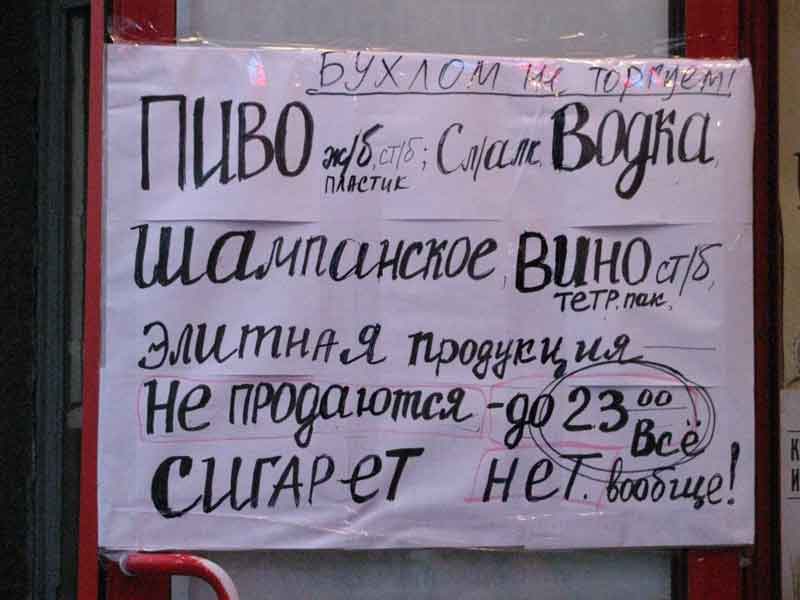 БУХЛОМ не торгуем!
ПИВО ж/б, ст/б; Сл/алк, Водка,
пластик
Шампанское, вино ст/б,
тетр. пак,
Элитная продукция
Не продаются - до 23 00
Всё
Сигарет нет. вообще!
К
И